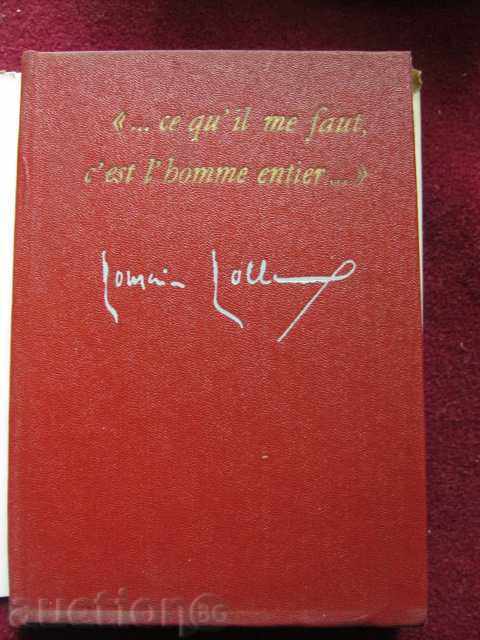 « ... ce qu'il me faut,
c'est l'homme entier.... »
Romain Rolland
auction BG